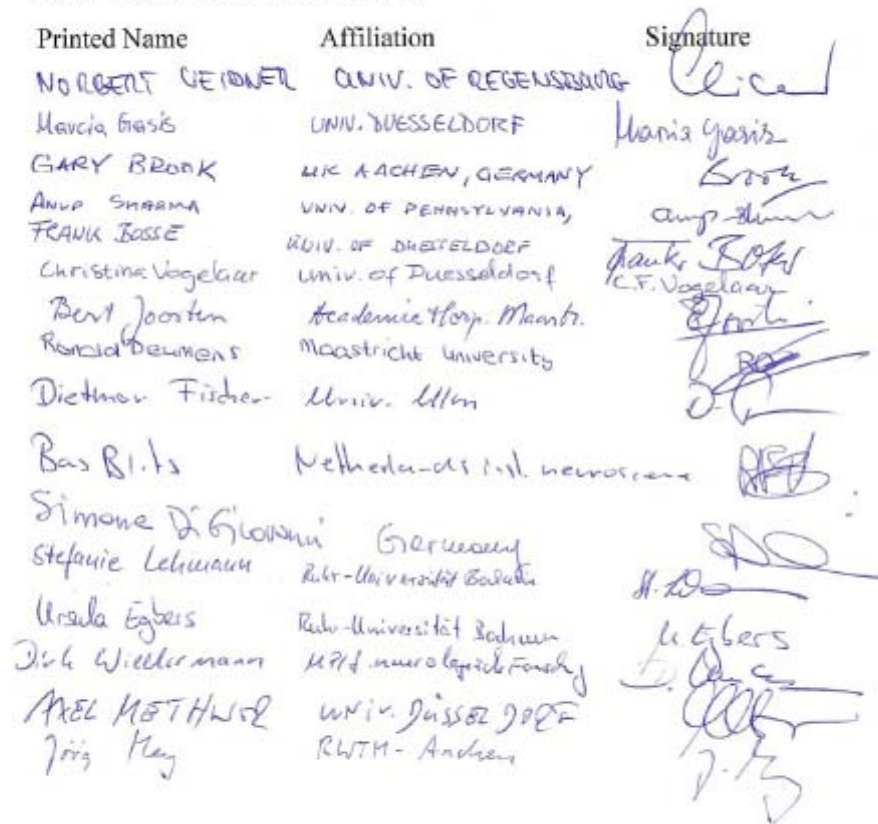 Printed Name Affiliation Signature
NORBERT WEIDNER UNIV. OF REGENSBURG
Marcia Gasis UNIV. DUESSELDORF Maria Gasis
GARY BROOK UK AACHEN, GERMANY Brook
ANUP SHARMA UNIV. OF PENNSYLVANIA,
FRANK BOSSE UNIV. OF DUESSELDORF Frank Bosse
Christina Vogelaar Univ. of Duesseldorf C.F. Vogelaar
Bert Joosten Academic Hosp. Maastr.
Ronald Deumens Maastricht University
Dietmar Fischer Univ. Ulm
Bas Blits Netherlands inst. neuroscience
Simone Di Giovanni Germany
Stefanie Lehmann Ruhr-Universität Bochum
Ursula Egbers Ruhr-Universität Bochum U. Egbers
Dirk MPI f. neurologische Forschung
AXEL METHNER UNIV. DÜSSELDORF
Jörg Mey RWTH-Aachen J. Mey